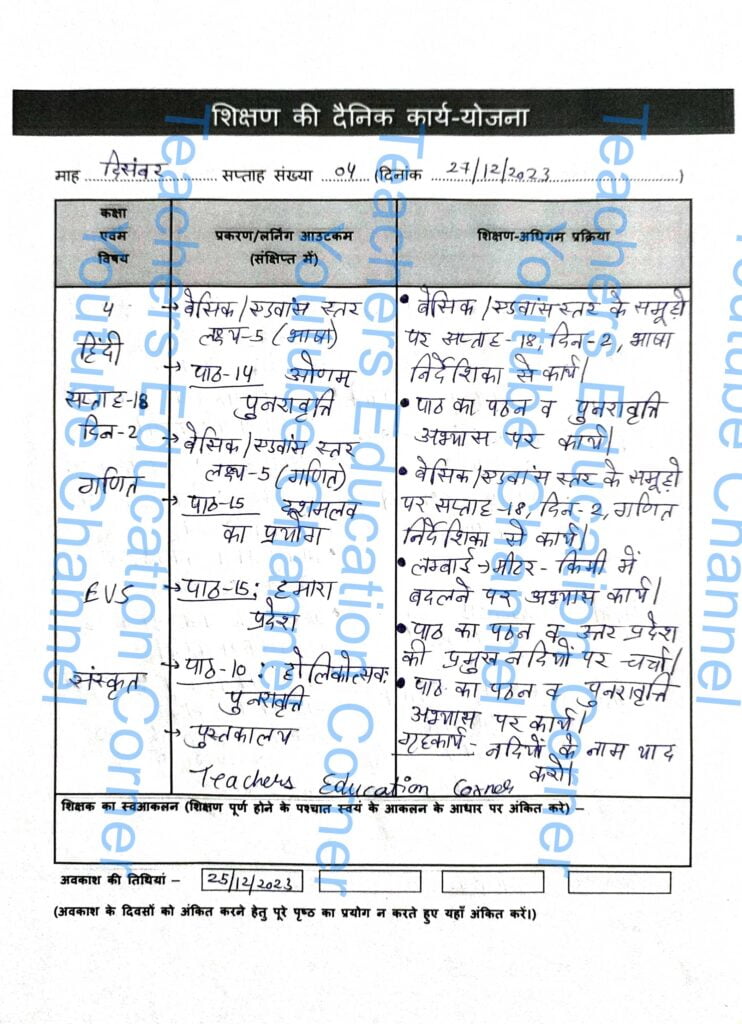 शिक्षण की दैनिक कार्य-योजना
माह दिसंबर सप्ताह संख्या 04 (दिनांक 27/12/2023)
कक्षा एवम विषय
प्रकरण/लर्निंग आउटकम (संक्षिप्त में)
शिक्षण-अधिगम प्रक्रिया
4
हिंदी
सप्ताह-18
दिन-2
→ बेसिक/एडवांस स्तर
लक्ष्य-5 (भाषा)
→ पाठ-14 ओणम
पुनरावृत्ति
• बेसिक/एडवांस स्तर के समूहो
पर सप्ताह-18, दिन-2, भाषा
निर्देशिका से कार्य।
• पाठ का पठन व पुनरावृत्ति
अभ्यास पर कार्य।
गणित
→ बेसिक/एडवांस स्तर
लक्ष्य-5 (गणित)
→ पाठ-15 दशमलव
का प्रयोग
• बेसिक/एडवांस स्तर के समूहो
पर सप्ताह-18, दिन-2, गणित
निर्देशिका से कार्य।
• लम्बाई → मीटर - किमी में
बदलने पर अभ्यास कार्य।
EVS
→ पाठ-15: हमारा
प्रदेश
• पाठ का पठन व उत्तर प्रदेश
की प्रमुख नदियों पर चर्चा।
संस्कृत
→ पाठ-10: होलिकोत्सवः
पुनरावृत्ति
→ पुस्तकालय
• पाठ का पठन व पुनरावृत्ति
अभ्यास पर कार्य।
गृहकार्य - नदियों के नाम याद
करो।
Teachers Education Corner
शिक्षक का स्वआकलन (शिक्षण पूर्ण होने के पश्चात स्वयं के आकलन के आधार पर अंकित करे) –
अवकाश की तिथियां – 25/12/2023
(अवकाश के दिवसों को अंकित करने हेतु पूरे पृष्ठ का प्रयोग न करते हुए यहाँ अंकित करें।)
Teachers Education Corner
Youtube Channel
Teachers Education Corner
Youtube Channel
Teachers Education Corner
Youtube Channel